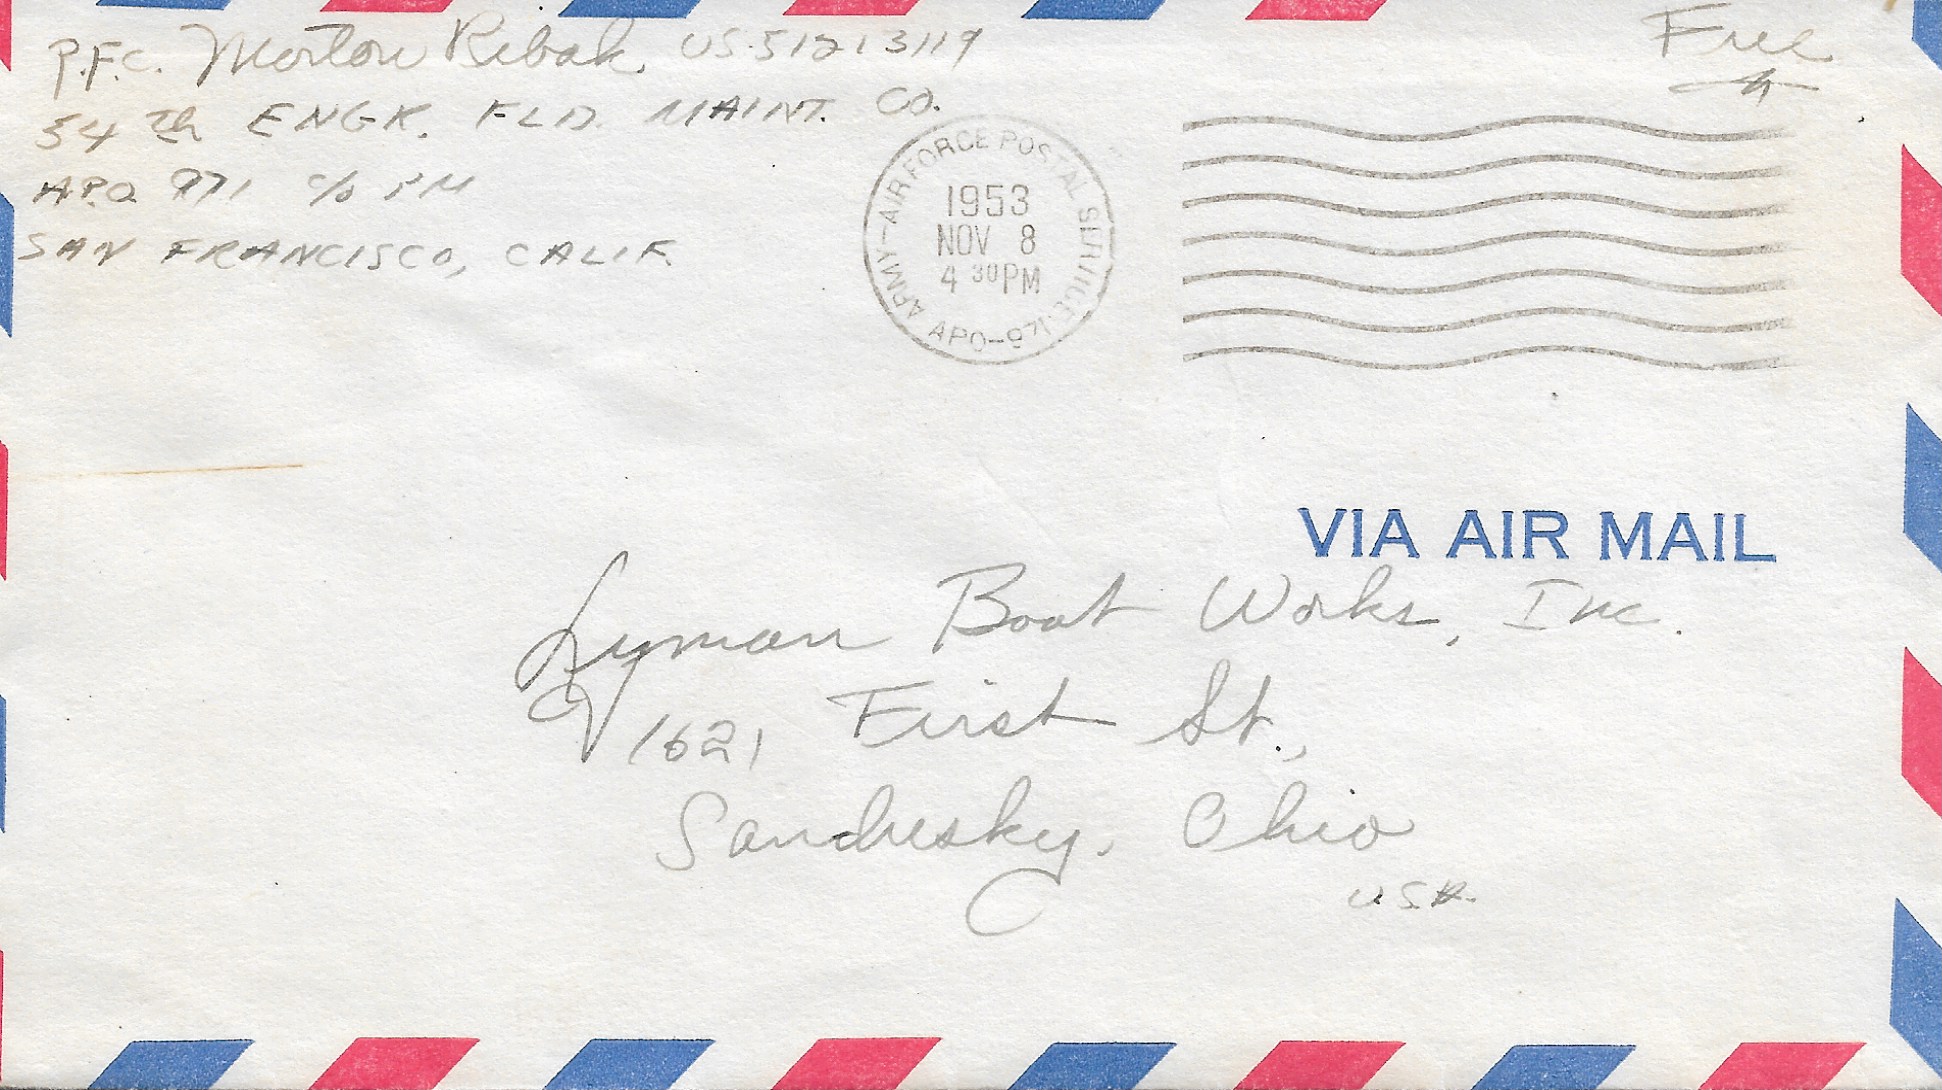 P.F.C. Morton Ribak US 51213119
54th ENGR. FLD. MAINT. CO.
A.P.O. 971 c/o PM
SAN FRANCISCO, CALIF.
Free
ARMY-AIR FORCE POSTAL SERVICE
1953
NOV 8
4 30 PM
APO-971
VIA AIR MAIL
Lyman Boat Works, Inc.
1621 First St.,
Sandusky, Ohio
U.S.A.